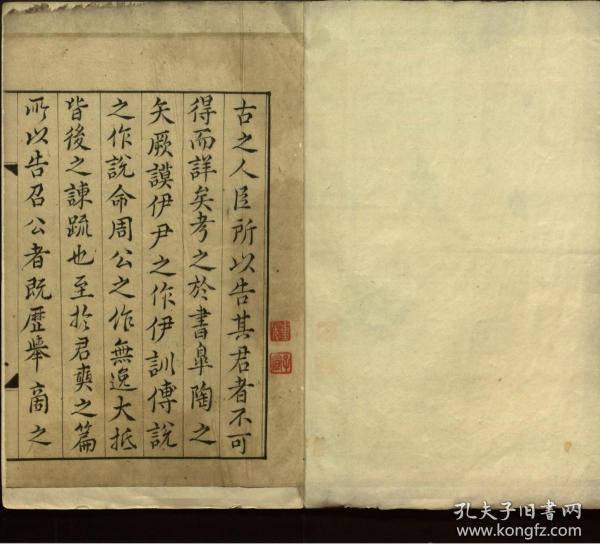 古之人臣所以告其君者不可
得而詳矣考之於書皐陶之
矢厥謨伊尹之作伊訓傅說
之作說命周公之作無逸大抵
皆後之諫疏也至於君奭之篇
所以告召公者既歷舉商之
孔夫子旧书网
www.kongfz.com